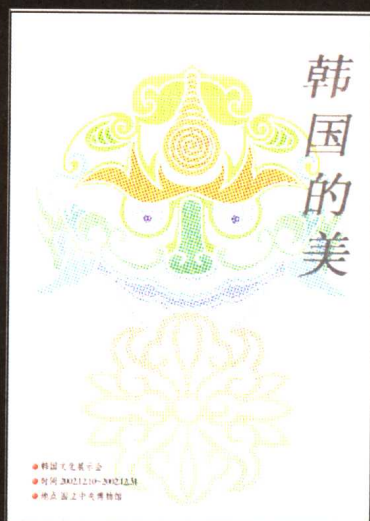 韩国的美
韩国文化展示会
时间 2002.12.10~2002.12.31
地点 国立中央博物馆